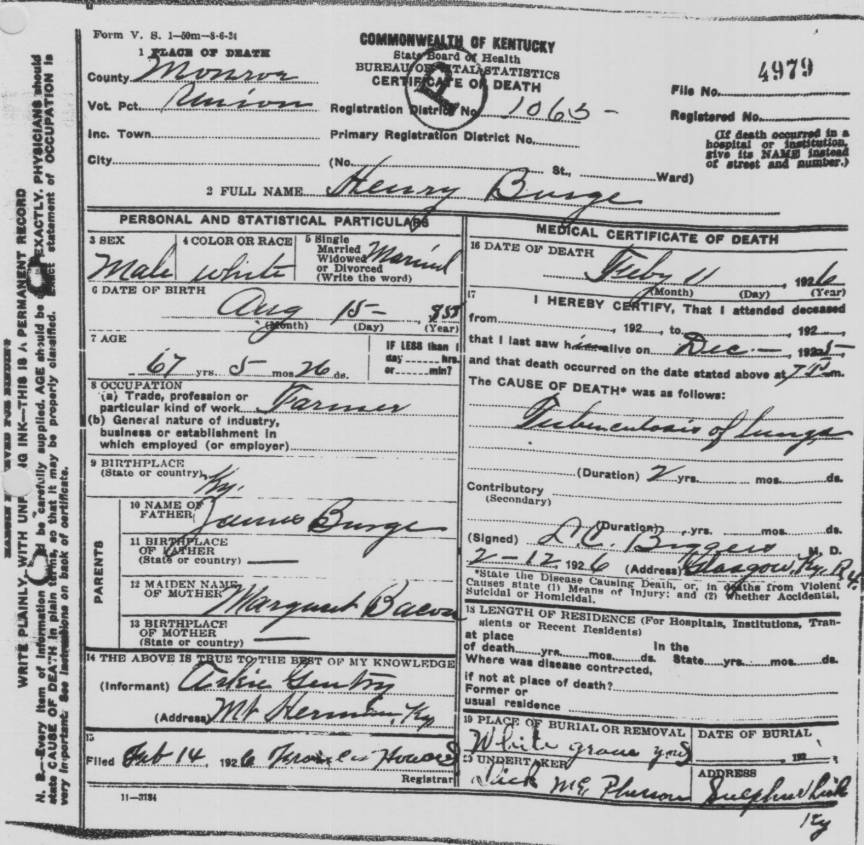 Form V. S. 1—50m—8-6-24
COMMONWEALTH OF KENTUCKY
State Board of Health
BUREAU OF VITAL STATISTICS
CERTIFICATE OF DEATH
4979
File No.
Registered No.
(If death occurred in a
hospital or institution,
give its NAME instead
of street and number.)
1 PLACE OF DEATH
County Monroe
Vot. Pct. Union
Registration District No. 1065 -
Inc. Town
Primary Registration District No.
City
(No. St., Ward)
2 FULL NAME Henry Burge
PERSONAL AND STATISTICAL PARTICULARS
3 SEX
Male
4 COLOR OR RACE
white
5 Single
Married
Widowed
or Divorced
(Write the word)
Married
6 DATE OF BIRTH
Aug 15-
(Month) (Day) (Year)
7 AGE
67 yrs. 5 mos 26 ds.
IF LESS than 1
day hrs.
or min?
8 OCCUPATION
(a) Trade, profession or
particular kind of work Farmer
(b) General nature of industry,
business or establishment in
which employed (or employer)
9 BIRTHPLACE
(State or country) Ky.
PARENTS
10 NAME OF
FATHER James Burge
11 BIRTHPLACE
OF FATHER
(State or country) —
12 MAIDEN NAME
OF MOTHER Margaret Bacon
13 BIRTHPLACE
OF MOTHER
(State or country) —
14 THE ABOVE IS TRUE TO THE BEST OF MY KNOWLEDGE
(Informant) Arkie Gentry
(Address) Mt Hermon, Ky
15
Filed Feb 14, 1926
Registrar
11—3184
MEDICAL CERTIFICATE OF DEATH
16 DATE OF DEATH
Feby 11, 1926
(Month) (Day) (Year)
17
I HEREBY CERTIFY, That I attended deceased
from , 192 , to , 192 ,
that I last saw him alive on Dec - , 1925
and that death occurred on the date stated above at m.
The CAUSE OF DEATH* was as follows:
Tuberculosis of Lungs
(Duration) 2 yrs. mos. ds.
Contributory
(Secondary)
(Duration) yrs. mos. ds.
(Signed) L.C. Biggers M. D.
2-12 1926 (Address) Glasgow, Ky. R 4.
*State the Disease Causing Death, or, in deaths from Violent
Causes state (1) Means of Injury; and (2) Whether Accidental,
Suicidal or Homicidal.
18 LENGTH OF RESIDENCE (For Hospitals, Institutions, Tran-
sients or Recent Residents)
at place In the
of death yrs. mos. ds. State yrs. mos. ds.
Where was disease contracted,
if not at place of death?
Former or
usual residence
19 PLACE OF BURIAL OR REMOVAL
White grove
DATE OF BURIAL
, 192
20 UNDERTAKER
Dick McPherson
ADDRESS
Sulphur Lick
Ky
WRITE PLAINLY, WITH UNFADING INK—THIS IS A PERMANENT RECORD
N. B.—Every item of information should be carefully supplied. AGE should be EXACTLY. PHYSICIANS should
state CAUSE OF DEATH in plain terms, so that it may be properly classified. Exact statement of OCCUPATION is
very important. See instructions on back of certificate.